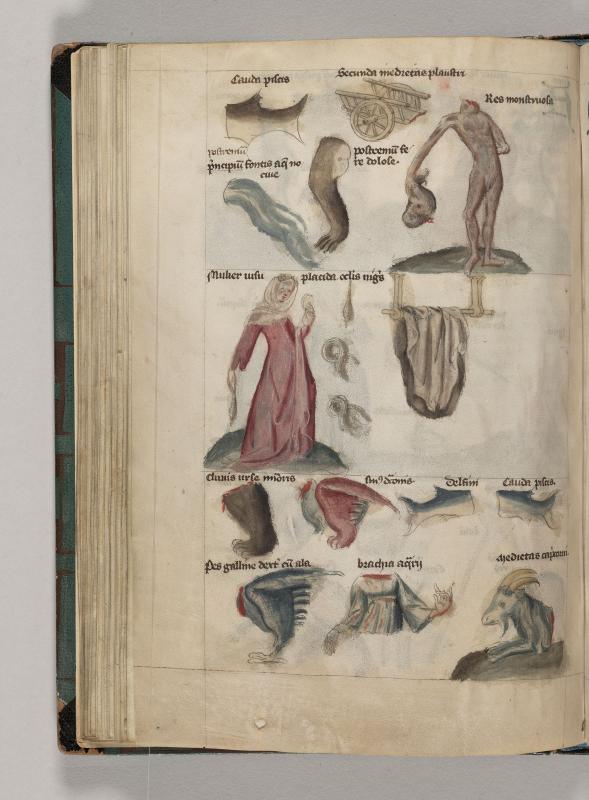 Cauda piscis
Secunda medietas plaustri
Res monstruosa
postremū
pͥncipiū fontis aq̄ no
ciue
postremū fe
re dolose.
Mulier uisu placida oclis nigͥs
Clunis urse mīoris
Delfini
Cauda piscis.
Pes galline dextʳ cū ala
brachia aq̄rij
Medietas capͥcorni